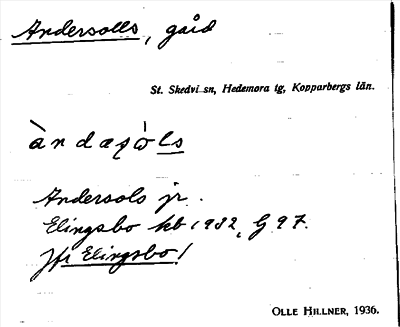 Andersolls, gård
St. Skedvi sn, Hedemora tg, Kopparbergs län.
àndaşòls
Andersols jr.
Elingsbo kb 1932, G 97.
Jfr Elingsbo!
OLLE HILLNER, 1936.